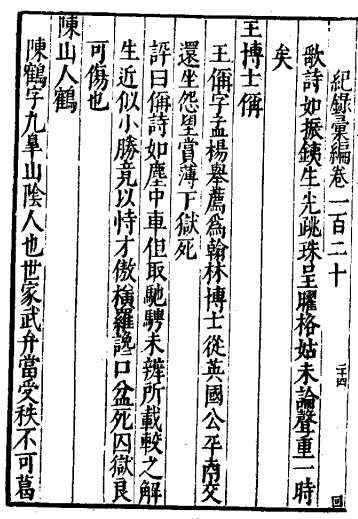 紀錄彙編卷一百二十
二十四
歌詩如振鐵生光跳珠呈曜格姑未論聲重一時
矣
王博士偁
王偁字孟楊舉薦為翰林博士從英國公平南交
還坐怨望賞薄下獄死
評曰偁詩如塵中車但取馳騁未辨所載較之解
生近似小勝竟以恃才傲橫羅讒口盆死囚獄良
可傷也
陳山人鶴
陳鶴字九皋山陰人也世家武弁當受秩不可葛